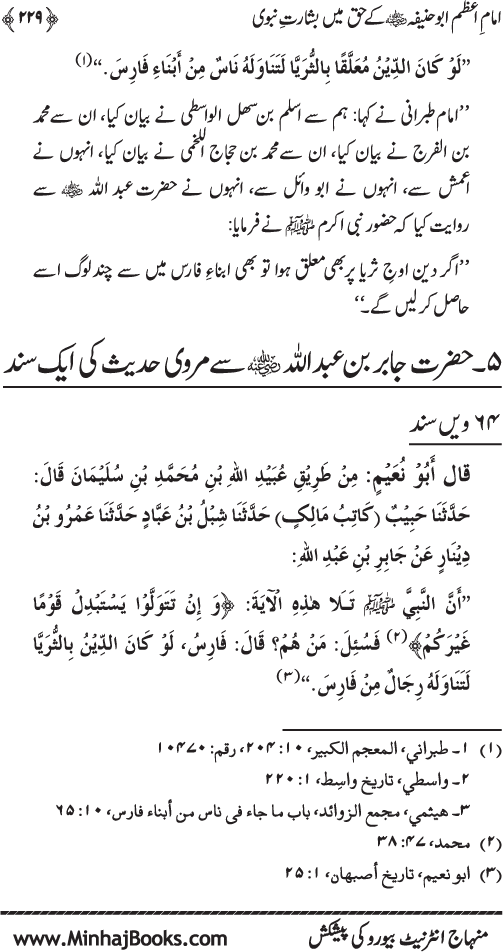 امامِ اعظم ابوحنیفہ ﷺ کے حق میں بشارتِ نبوی ﴿۲۲۹﴾
”لَوْ كَانَ الدِّيْنُ مُعَلَّقًا بِالثُّرَيَّا لَتَنَاوَلَهُ نَاسٌ مِنْ أَبْنَاءِ فَارِسَ.“(۱)
’’امام طبرانی نے کہا: ہم سے اسلم بن سھل الواسطی نے بیان کیا، ان سے محمد
بن الفرج نے بیان کیا، ان سے محمد بن حجاج اللخمی نے بیان کیا، انہوں نے
اعمش سے، انہوں نے ابو وائل سے، انہوں نے حضرت عبد اللہ ﷺ سے
روایت کیا کہ حضور نبی اکرم ﷺ نے فرمایا:
’’اگر دین اوجِ ثریا پر بھی معلق ہوا تو بھی ابناءِ فارس میں سے چند لوگ اسے
حاصل کر لیں گے۔‘‘
۵۔ حضرت جابر بن عبد اللہ رضی اللہ عنہ سے مروی حدیث کی ایک سند
۶۴ ویں سند
قال أَبُوْ نُعَيْمٍ: مِنْ طَرِيْقِ عُبَيْدِ اللهِ بْنِ مُحَمَّدِ بْنِ سُلَيْمَانَ قَالَ:
حَدَّثَنَا حَبِيْبٌ (كَاتِبُ مَالِكٍ) حَدَّثَنَا شِبْلُ بْنُ عَبَّادٍ حَدَّثَنَا عَمْرُو بْنُ
دِيْنَارٍ عَنْ جَابِرِ بْنِ عَبْدِ اللهِ:
”أَنَّ النَّبِيَّ ﷺ تَـلَا هٰذِهِ الْآيَةَ: ﴿وَ إِنْ تَتَوَلَّوْا يَسْتَبْدِلْ قَوْمًا
غَيْرَكُمْ﴾(۲) فَسُئِلَ: مَنْ هُمْ؟ قَالَ: فَارِسُ، لَوْ كَانَ الدِّيْنُ بِالثُّرَيَّا
لَتَنَاوَلَهُ رِجَالٌ مِنْ فَارِسَ.“(۳)
(۱) ۱۔ طبراني، المعجم الكبير، ۱۰: ۲۰۴، رقم: ۱۰۴۷۰
۲۔ واسطي، تاريخ واسِط، ۱: ۲۲۰
۳۔ هيثمي، مجمع الزوائد، باب ما جاء فى ناس من أبناء فارس، ۱۰: ۶۵
(۲) محمد، ۴۷: ۳۸
(۳) ابو نعيم، تاريخ أصبهان، ۱: ۲۵
منہاج انٹرنیٹ بیورو کی پیشکش www.MinhajBooks.com